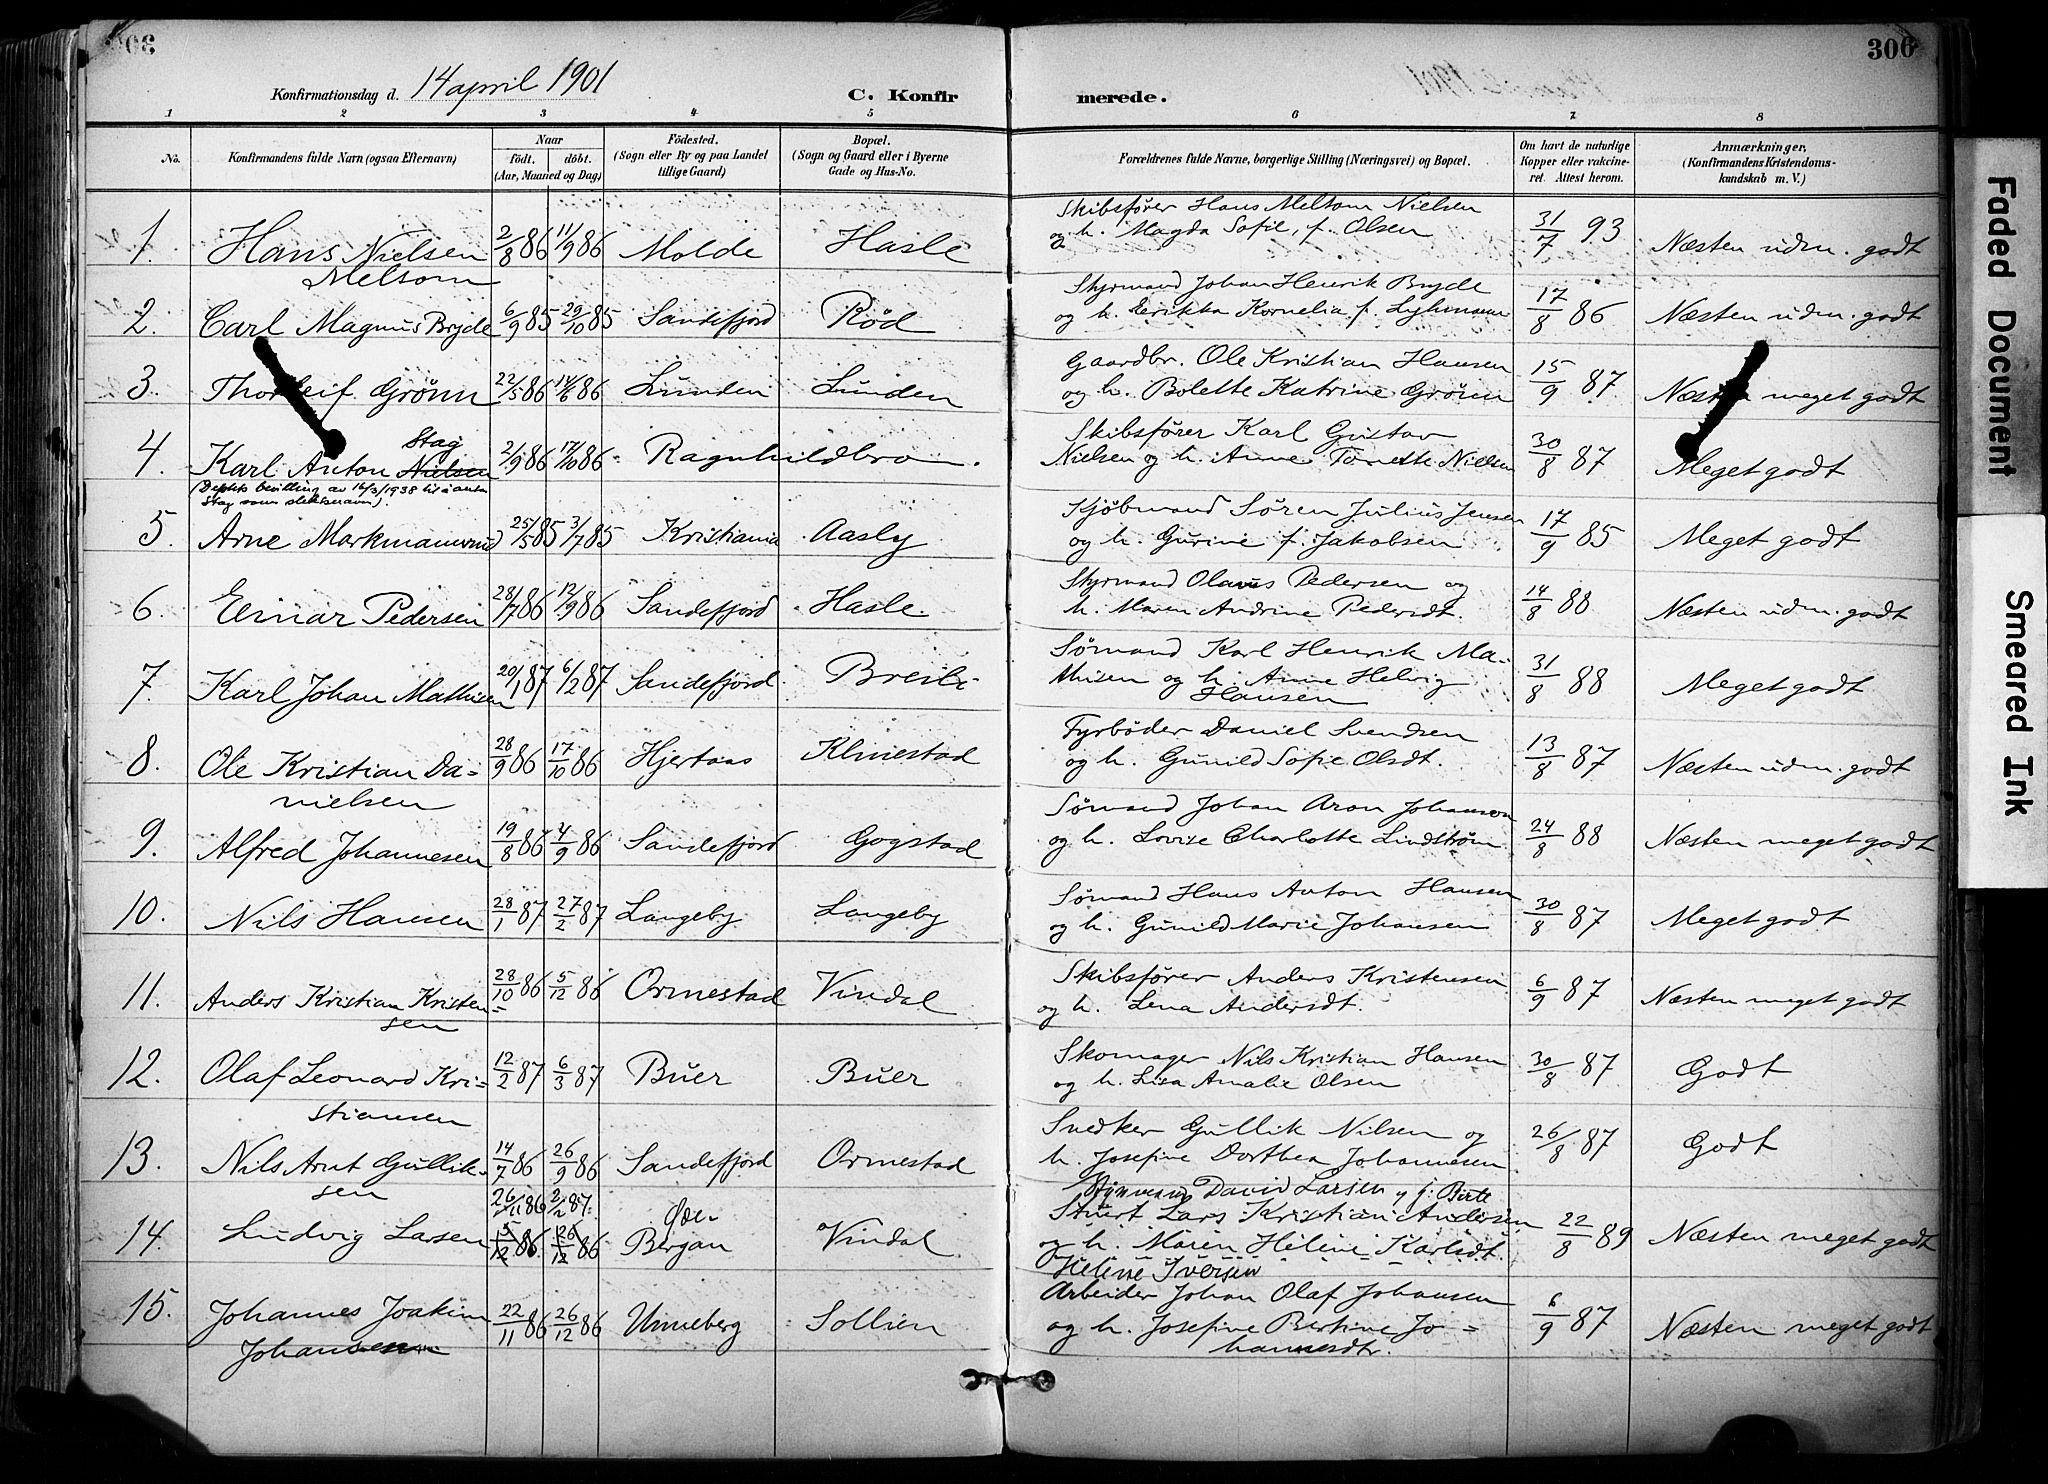 306
Konfirmationsdag d. 14 april 1901
C. Konfirmerede.
1 2 3 4 5 6 7 8
No.
Konfirmandens fulde Navn (ogsaa Efternavn)
Naar
födt. döbt.
(Aar, Maaned og Dag)
Födested.
(Sogn eller By og paa Landet
tillige Gaard)
Bopæl.
(Sogn og Gaard eller i Byerne
Gade og Hus-No.
Forældrenes fulde Navne, borgerlige Stilling (Næringsvei) og Bopæl.
Om havt de naturlige
Kopper eller vakcine-
ret. Attest herom.
Anmærkninger.
(Konfirmandens Kristendoms-
kundskab m. V.)
1. Hans Nielsen 2/8 86 11/9 86 Molde Hasle Skibsfører Hans Meltom Nielsen 31/7 93 Næsten udm. godt
Melsom og h. Magda Sofie, f. Olsen
2. Carl Magnus Bryde 6/9 85 29/10 85 Sandefjord Rød Styrmand Johan Henrik Bryde 17/8 86 Næsten udm. godt
og h. Erikka Kornelia f.
3. Thorleif Grønn 22/5 86 14/6 86 Lunden Lunden Gaardbr. Ole Kristian Hansen 15/9 87 Næsten meget godt
og h. Bolette Katrine Grønn
Stag
4. Karl Anton Nielsen 2/9 86 17/10 86 Ragnhildbro. Skibsfører Karl Gustav 30/8 87 Meget godt
Nielsen og h. Anne Tonette Nielsen
(Depts bevilling av 16/3/1938 til å anta
Stag som slektsnavn).
5. Arne Markmanrud 25/5 85 3/7 85 Kristiania Aasly Kjøbmand Søren Julius Jensen 17/9 85 Meget godt
og h. Gurine f. Jakobsen
6. Einar Pedersen 28/7 86 12/9 86 Sandefjord Hasle. Styrmand Olavus Pedersen og 14/8 88 Næsten udm. godt
h. Maren Andrine Pedersdt.
7. Karl Johan Mathisen 20/1 87 6/2 87 Sandefjord Sørmand Karl Henrik Ma- 31/8 88 Meget godt
thisen og h. Anne Helvig
Hansen
8. Ole Kristian Da- 28/9 86 17/10 86 Hjertaas Klinestad Fyrbøder Daniel Svendsen 13/8 87 Næsten udm. godt
nielsen og h. Gunild Sofie Olsdt.
9. Alfred Johannesen 19/8 86 4/9 86 Sandefjord Gogstad Sømand Johan Aron Johanson 24/8 88 Næsten meget godt
og h. Lovise Charlotte Lindstrøm
10. Nils Hansen 28/1 87 27/2 87 Langeby Langeby Sømand Hans Anton Hansen 30/8 87 Meget godt
og h. Gunild Marie Johansen
11. Anders Kristian Kristen- 28/10 86 5/12 86 Ormestad Vindal Skibsfører Anders Kristensen 6/9 87 Næsten meget godt
sen og h. Lena Andersdt.
12. Olaf Leonard Kri- 12/2 87 6/3 87 Buer Buer Skomager Nils Kristian Hansen 30/8 87 Godt
stiansen og h. Lisa Amalie Olsen
13. Nils Arnt Gullik- 14/7 86 26/9 86 Sandefjord Ormestad Snedker Gullik Nilsen og 26/8 87 Godt
sen h. Josefine Dorthea Johannesen
26/11 86 2/2 87. David Larsen og h: Birte
14. Ludvig Larsen 5/12 86 26/12 86 Bergan Vindal Stuert Lars Kristian Andersen 22/8 89 Næsten meget godt
og h. Maren Helene Karlsdt.
Helene Iversen
15. Johannes Joakim 22/11 86 26/12 86 Unneberg Sollien Arbeider Johan Olaf Johansen 6/9 87 Næsten meget godt
Johansen og h. Josefine Bertine Jo-
hannesdtr.
Faded Document
Smeared Ink